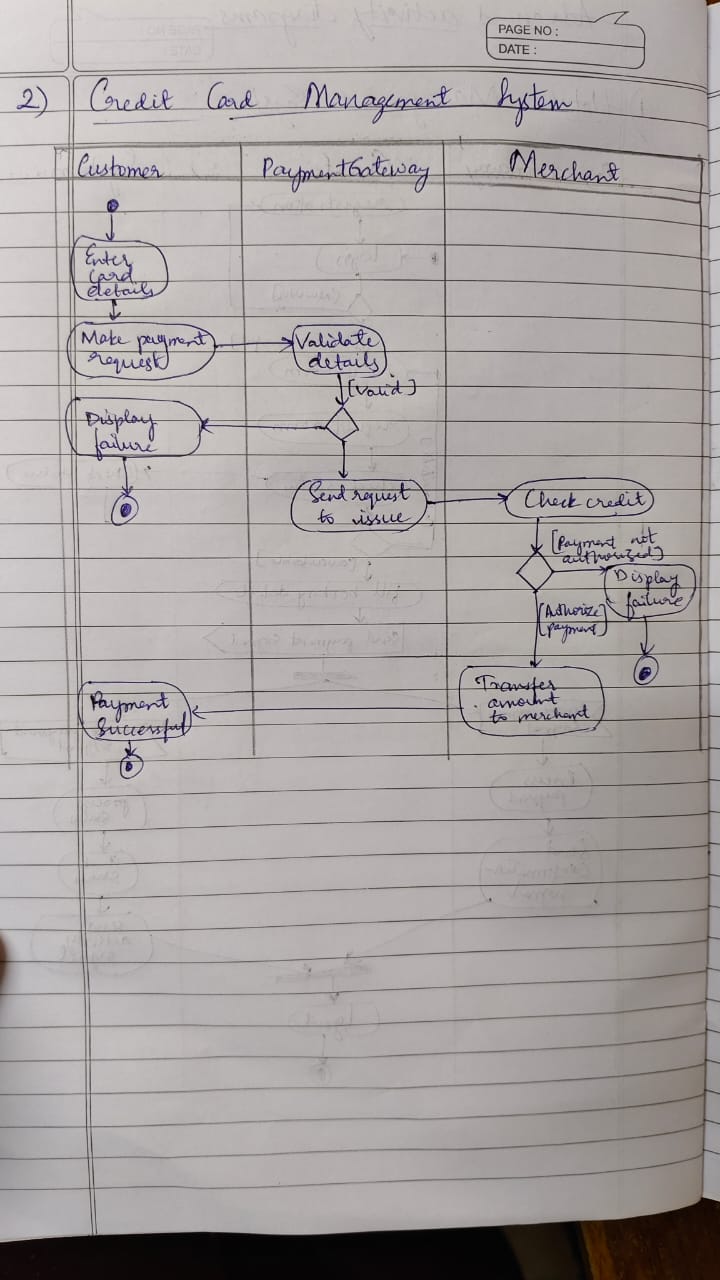 PAGE NO :
DATE :
2) Credit Card Management System
Customer
PaymentGateway
Merchant
Enter
card
details
Make payment
request
Validate
details
[Valid]
Display
failure
Send request
to issue
Check credit
[Payment not
authorized]
Display
failure
[Authorize
payment]
Transfer
amount
to merchant
Payment
Successful